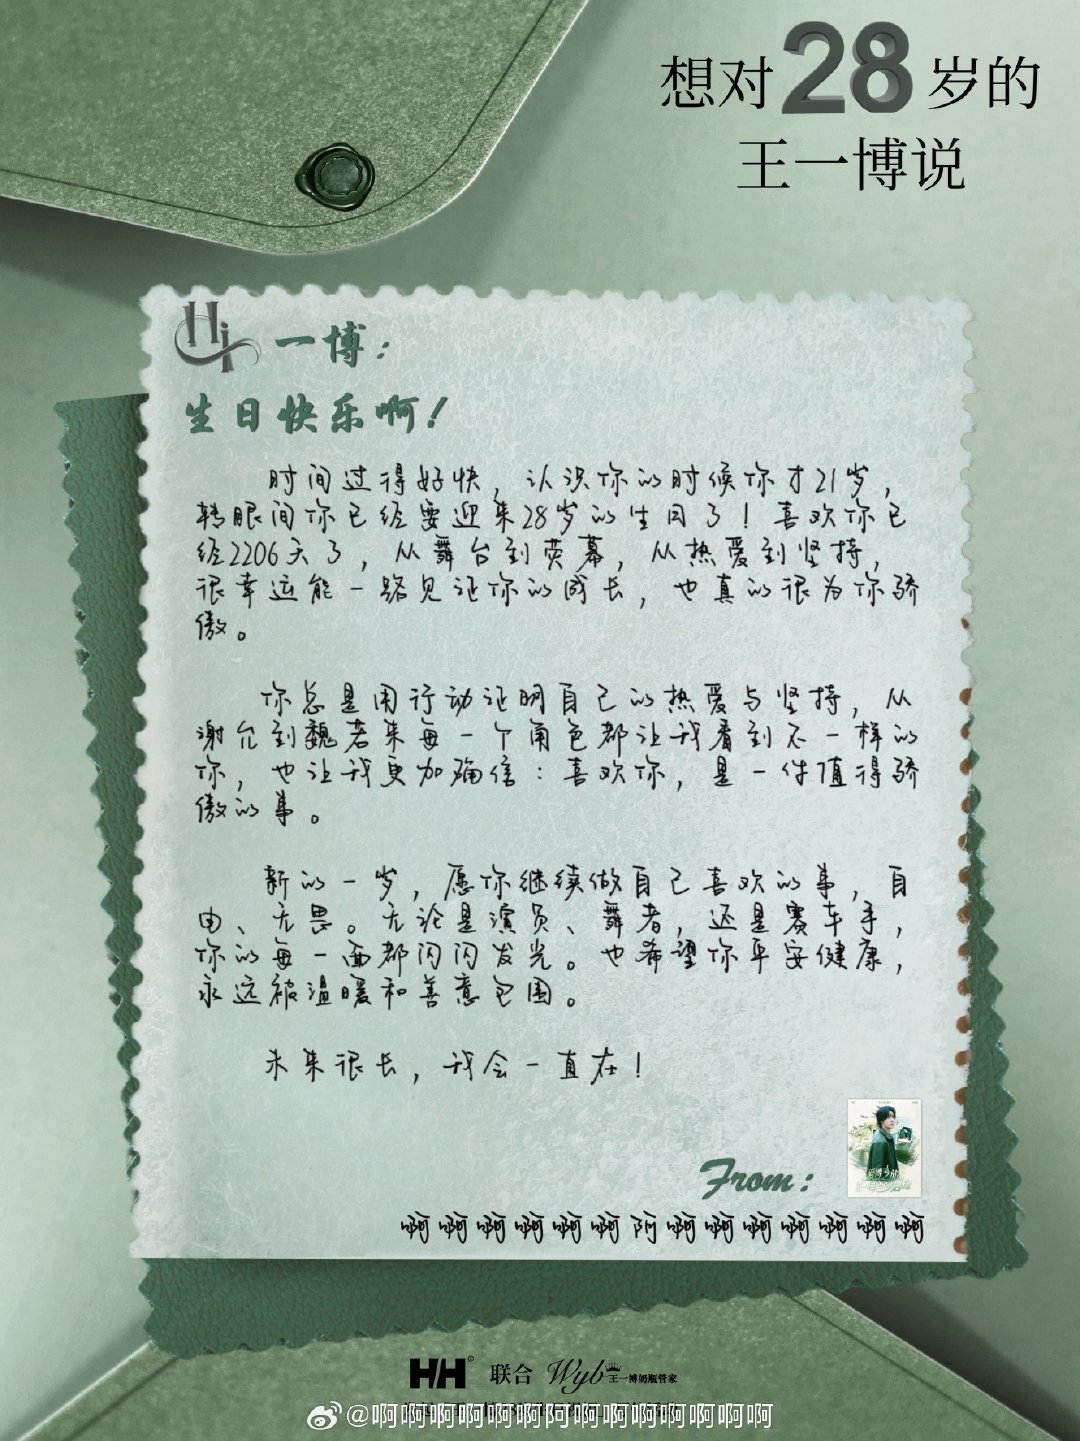 想对28岁的
王一博说
Hi 一博：
生日快乐啊！
时间过得好快，认识你的时候你才21岁，
转眼间你已经要迎来28岁的生日了！喜欢你已
经2206天了，从舞台到荧幕，从热爱到坚持，
很幸运能一路见证你的成长，也真的很为你骄
傲。
你总是用行动证明自己的热爱与坚持，从
谢允到魏若来每一个角色都让我看到不一样的
你，也让我更加确信：喜欢你，是一件值得骄
傲的事。
新的一岁，愿你继续做自己喜欢的事，自
由、无畏。无论是演员、舞者，还是赛车手，
你的每一面都闪闪发光。也希望你平安健康，
永远被温暖和善意包围。
未来很长，我会一直在！
From：
啊啊啊啊啊啊阿啊啊啊啊啊啊啊
HH® 联合 Wyb 王一博奶瓶管家
@啊啊啊啊啊啊阿啊啊啊啊啊啊啊